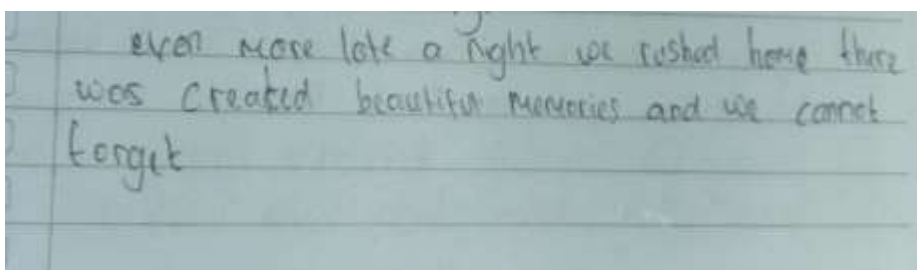 even more late a night we rushed home there
was created beautiful memories and we cannot
forget